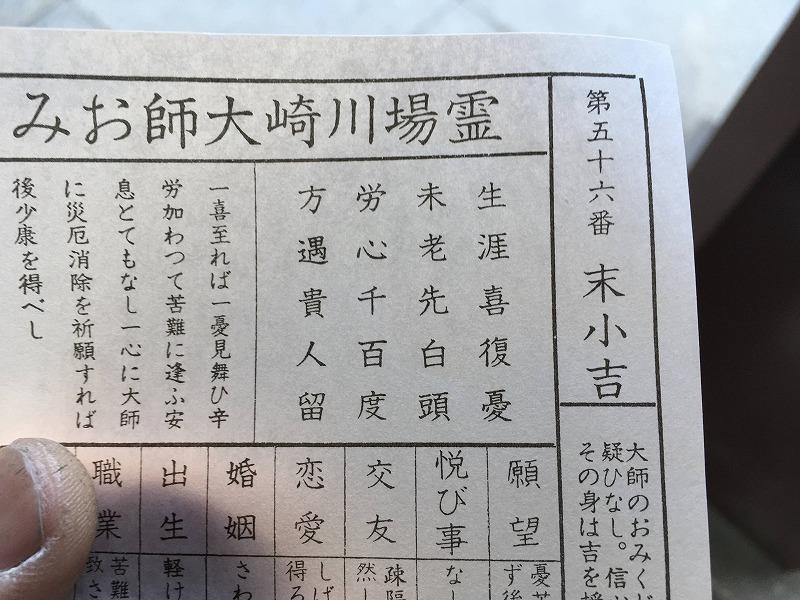 第五十六番 末小吉
大師のおみく
疑ひなし。信
その身は吉を
霊場川崎大師おみ
生涯喜復憂
未老先白頭
労心千百度
方遇貴人留
一喜至れば一憂見舞ひ辛
労加わつて苦難に逢ふ安
息とてもなし一心に大師
に災厄消除を祈願すれば
後少康を得べし
願望
憂
ず後
悦び事
な
交友
疎
然し
恋愛
しば
得
婚姻
さわ
出生
軽け
職業
苦難
致さ